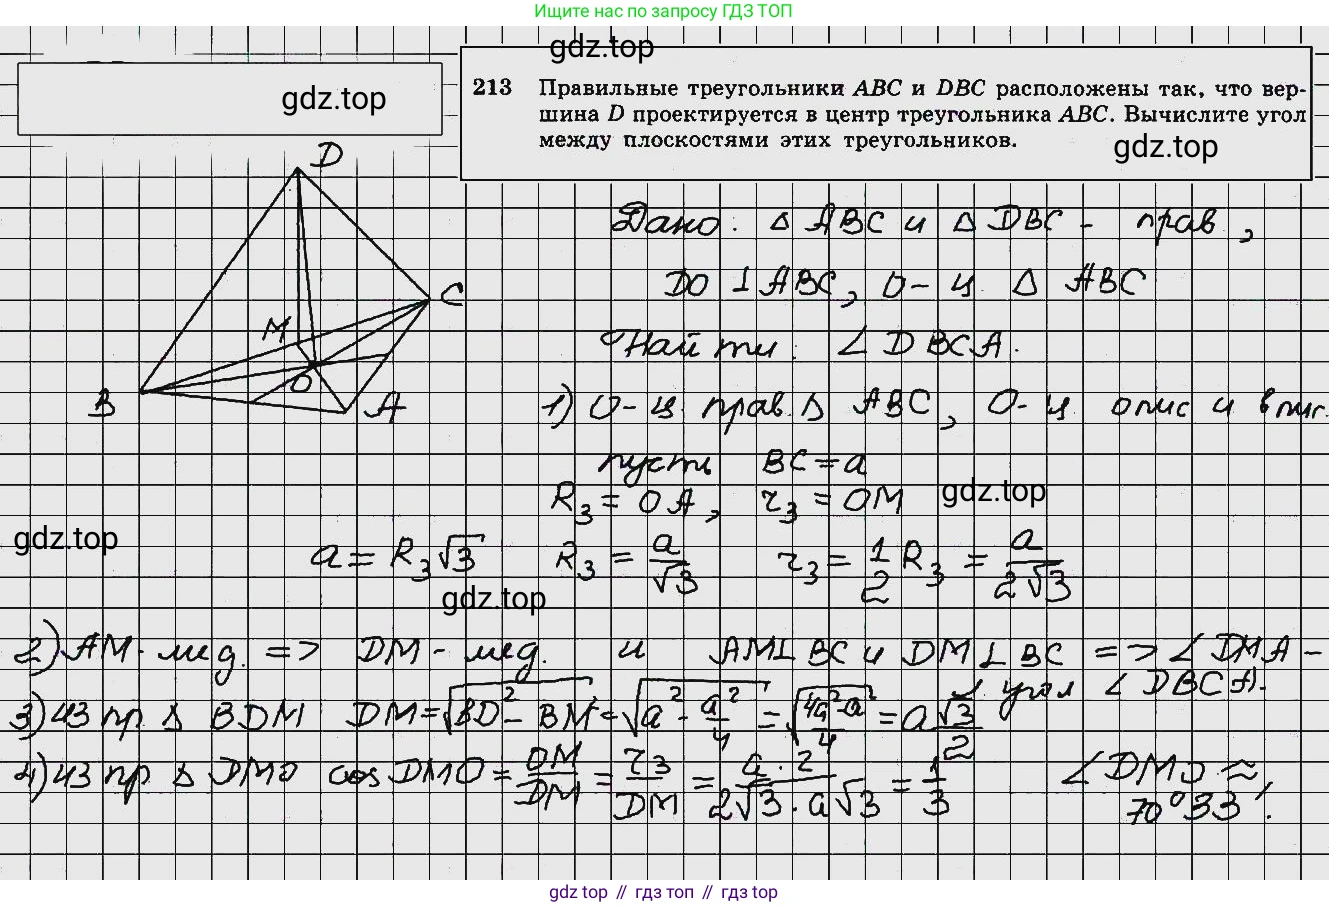 Ищите нас по запросу ГДЗ ТОП
gdz.top
gdz.top
213 Правильные треугольники ABC и DBC расположены так, что вер-
шина D проектируется в центр треугольника ABC. Вычислите угол
между плоскостями этих треугольников.
gdz.top
D
C
M
O
B
A
Дано: △ ABC и △ DBC - прав,
DO ⊥ ABC, O - ц. △ ABC
Найти: ∠ DBCA.
1) O - ц. прав △ ABC, O - ц опис и впис.
пусть BC = a
R₃ = OA, r₃ = OM
gdz.top
gdz.top
a = R₃√3 R₃ = a/√3 r₃ = 1/2 R₃ = a/(2√3)
gdz.top
2) AM - мед. => DM - мед. и AM ⊥ BC и DM ⊥ BC => ∠ DMA -
угол ∠ DBCA.
3) из пр △ BDM DM = √(BD² - BM²) = √(a² - a²/4) = √((4a² - a²)/4) = a √3/2
4) из пр △ DMO cos DMO = OM/DM = r₃/DM = (a · 2)/(2√3 · a√3) = 1/3 ∠ DMO ≈
70°33'.
gdz top // гдз топ // гдз top